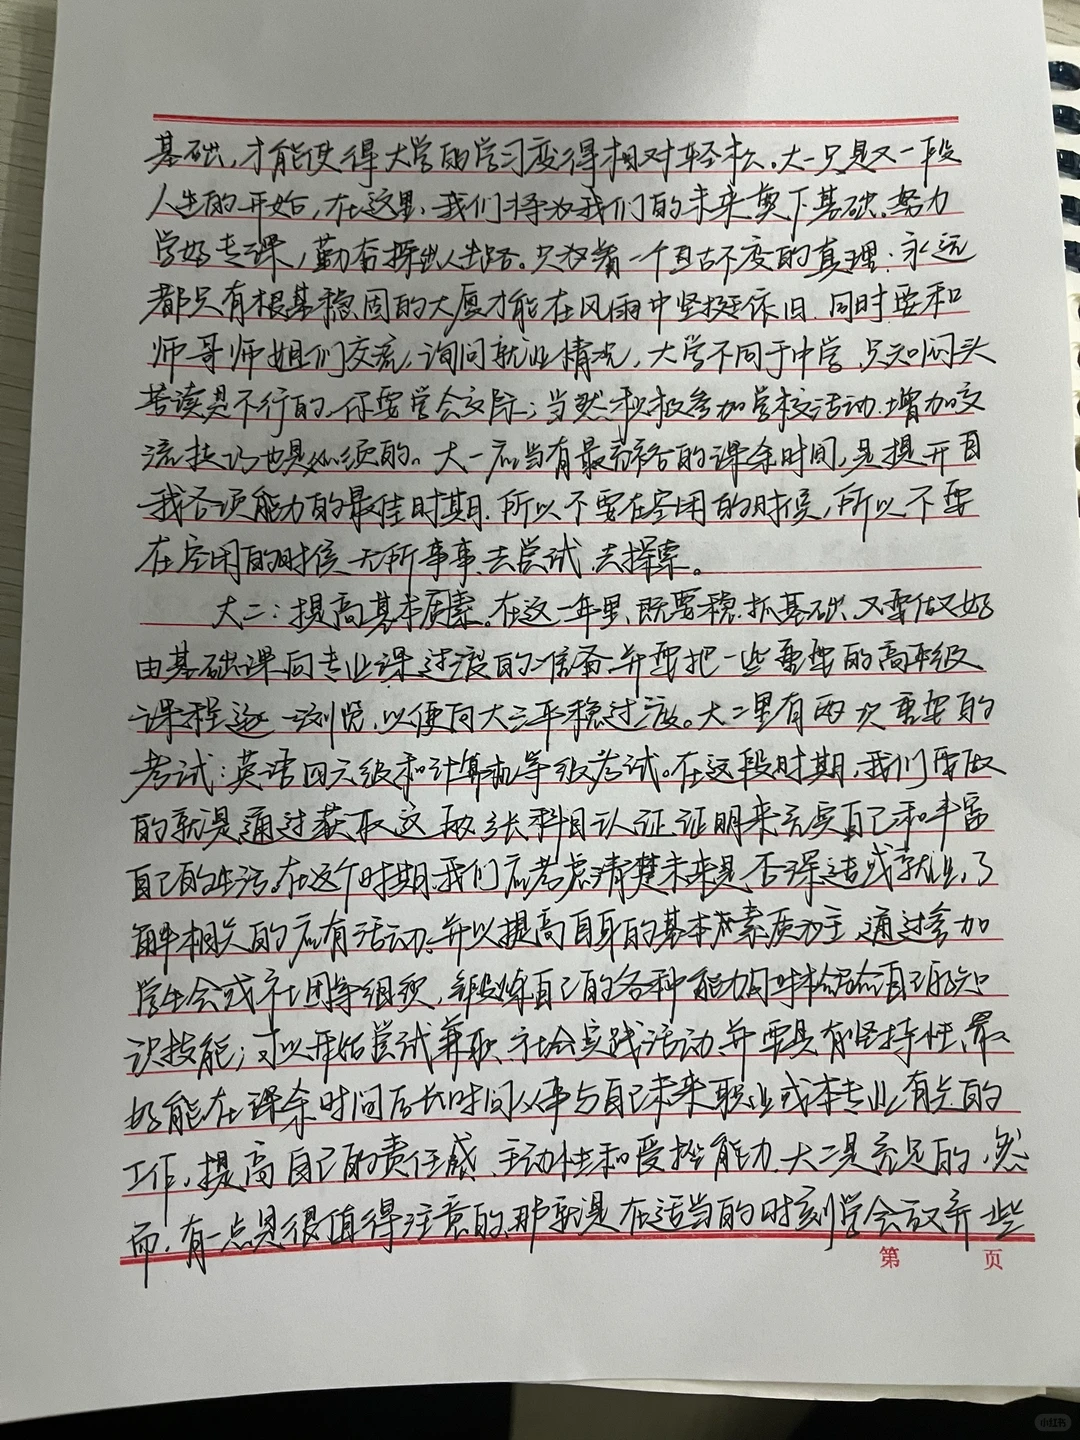 基础,才能使得大学的学习变得相对轻松。大一只是又一段
人生的开始,在这里、我们将为我们的未来奠下基础。努力
学好专课,勤奋探出人生路。只放着一个亘古不变的真理:永远
都只有根基稳固的大厦才能在风雨中坚挺依旧.同时要和
师哥师姐们交流,询问就业情况,大学不同于中学,只知闷头
苦读是不行的,你要学会交际;当然积极参加学校活动.增加交
流技巧也是必须的。大一应当有最富裕的课余时间,是提升自
我各项能力的最佳时期.所以不要在空闲的时候,所以不要
在空闲的时候无所事事、去尝试.去探索。
大二:提高基本质素。在这一年里、既要稳抓基础、又要做好
由基础课向专业课过渡的准备.并要把一些重要的高年级
课程逐一浏览,以便向大三平稳过渡。大二里有两次重要的
考试:英语四六级和计算机等级考试。在这段时期,我们要做
的就是通过获取这两张科目认证证明来充实自己和丰富
自己的生活。在这个时期,我们应考虑清楚未来是否深造或就业,了
解相关的应有活动、并以提高自身的基本素质为主,通过参加
学生会或社团等组织,锻炼自己的各种能力,同时检验自己的知
识技能;可以开始尝试兼职、社会实践活动、并要具有坚持性,最
好能在课余时间后长时间从事与自己未来职业或本专业有关的
工作,提高自己的责任感、主动性和受挫能力.大二是充足的,然
而,有一点是很值得注意的,那就是在适当的时刻学会放弃一些
第 页
小红书